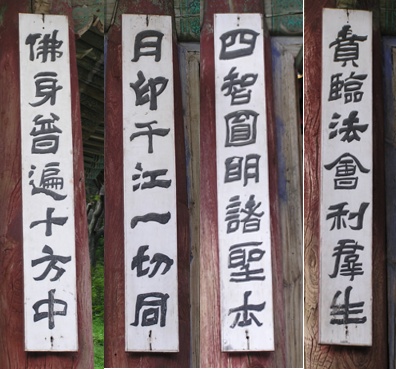 佛身普遍十方中
月印千江一切同
四智圓明諸聖本
賁臨法會利羣生